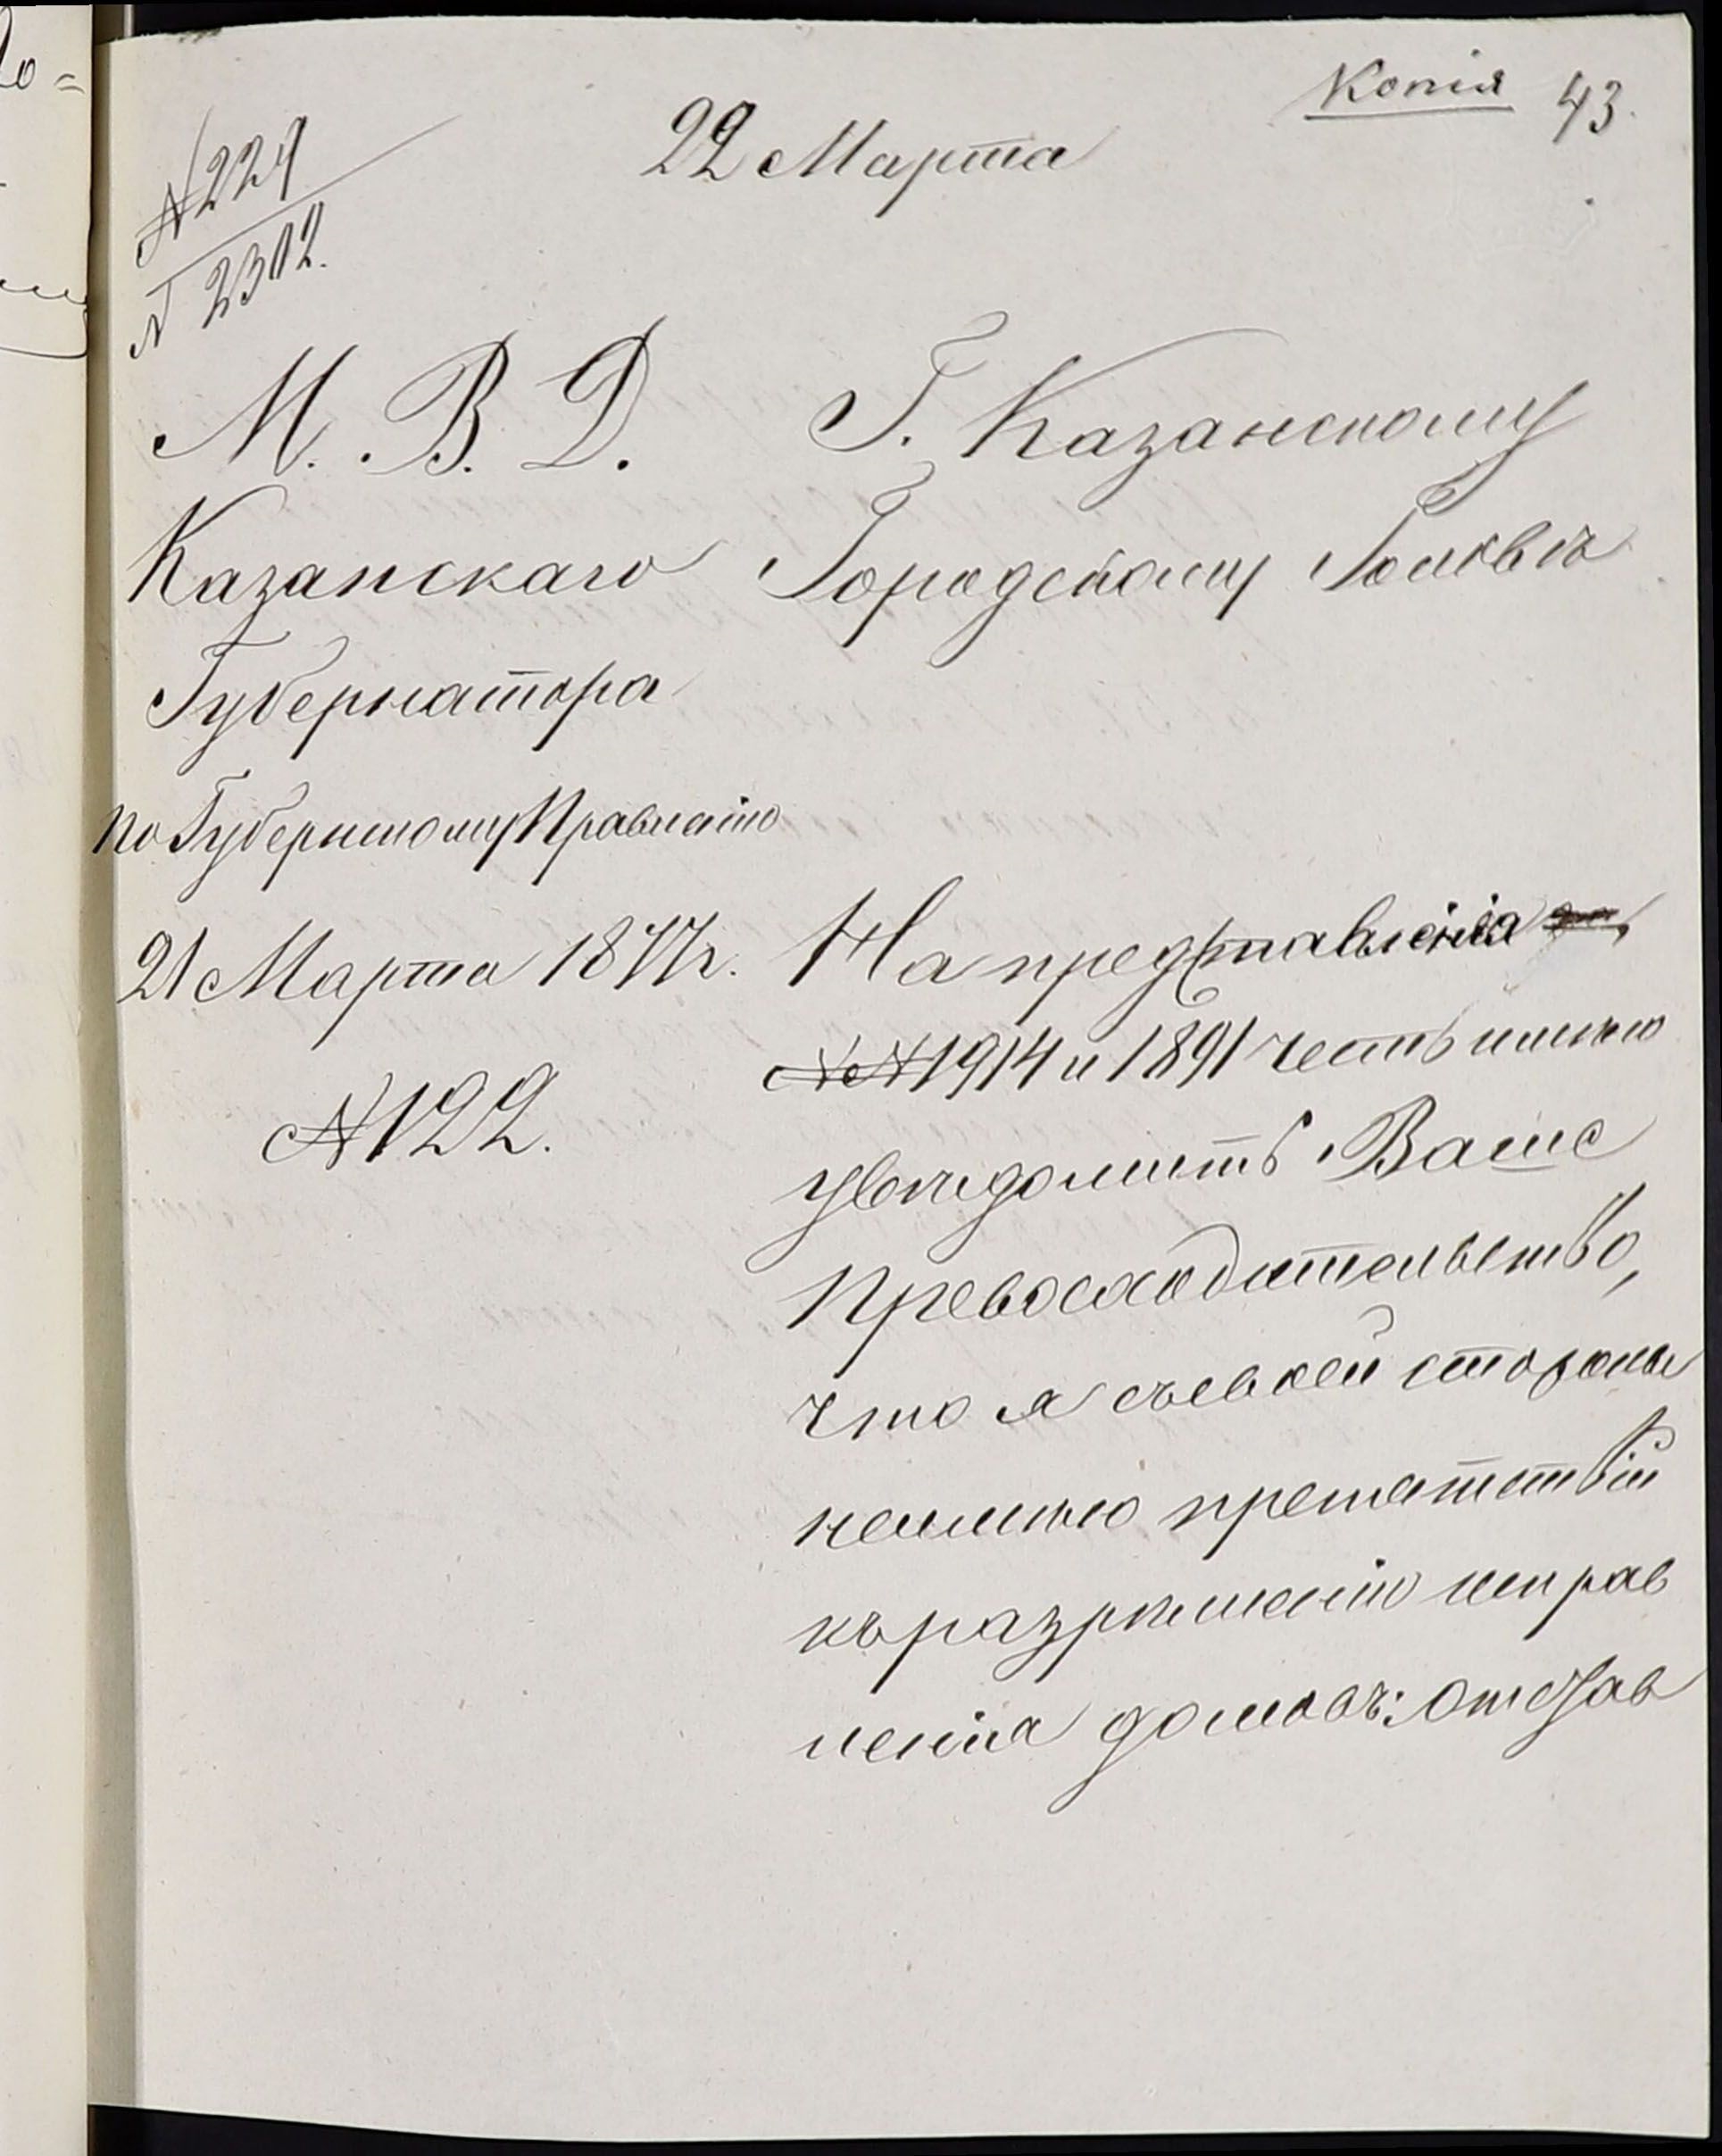 Копія 43.
22 Марта
№ 229
№ 2302.
М. В. Д.
Казанскаго
Губернатора
по Губернскому Правленію
21 Марта 1877 г.
№ 122.
Г. Казанскому
Городскому Головѣ
На представленія
№№ 1914 и 1891 честь имѣю
увѣдомить Ваше
Превосходительство,
что я съ своей стороны
неимѣю препятствій
къ разрѣшенію исправ
ленія домовъ: отстав